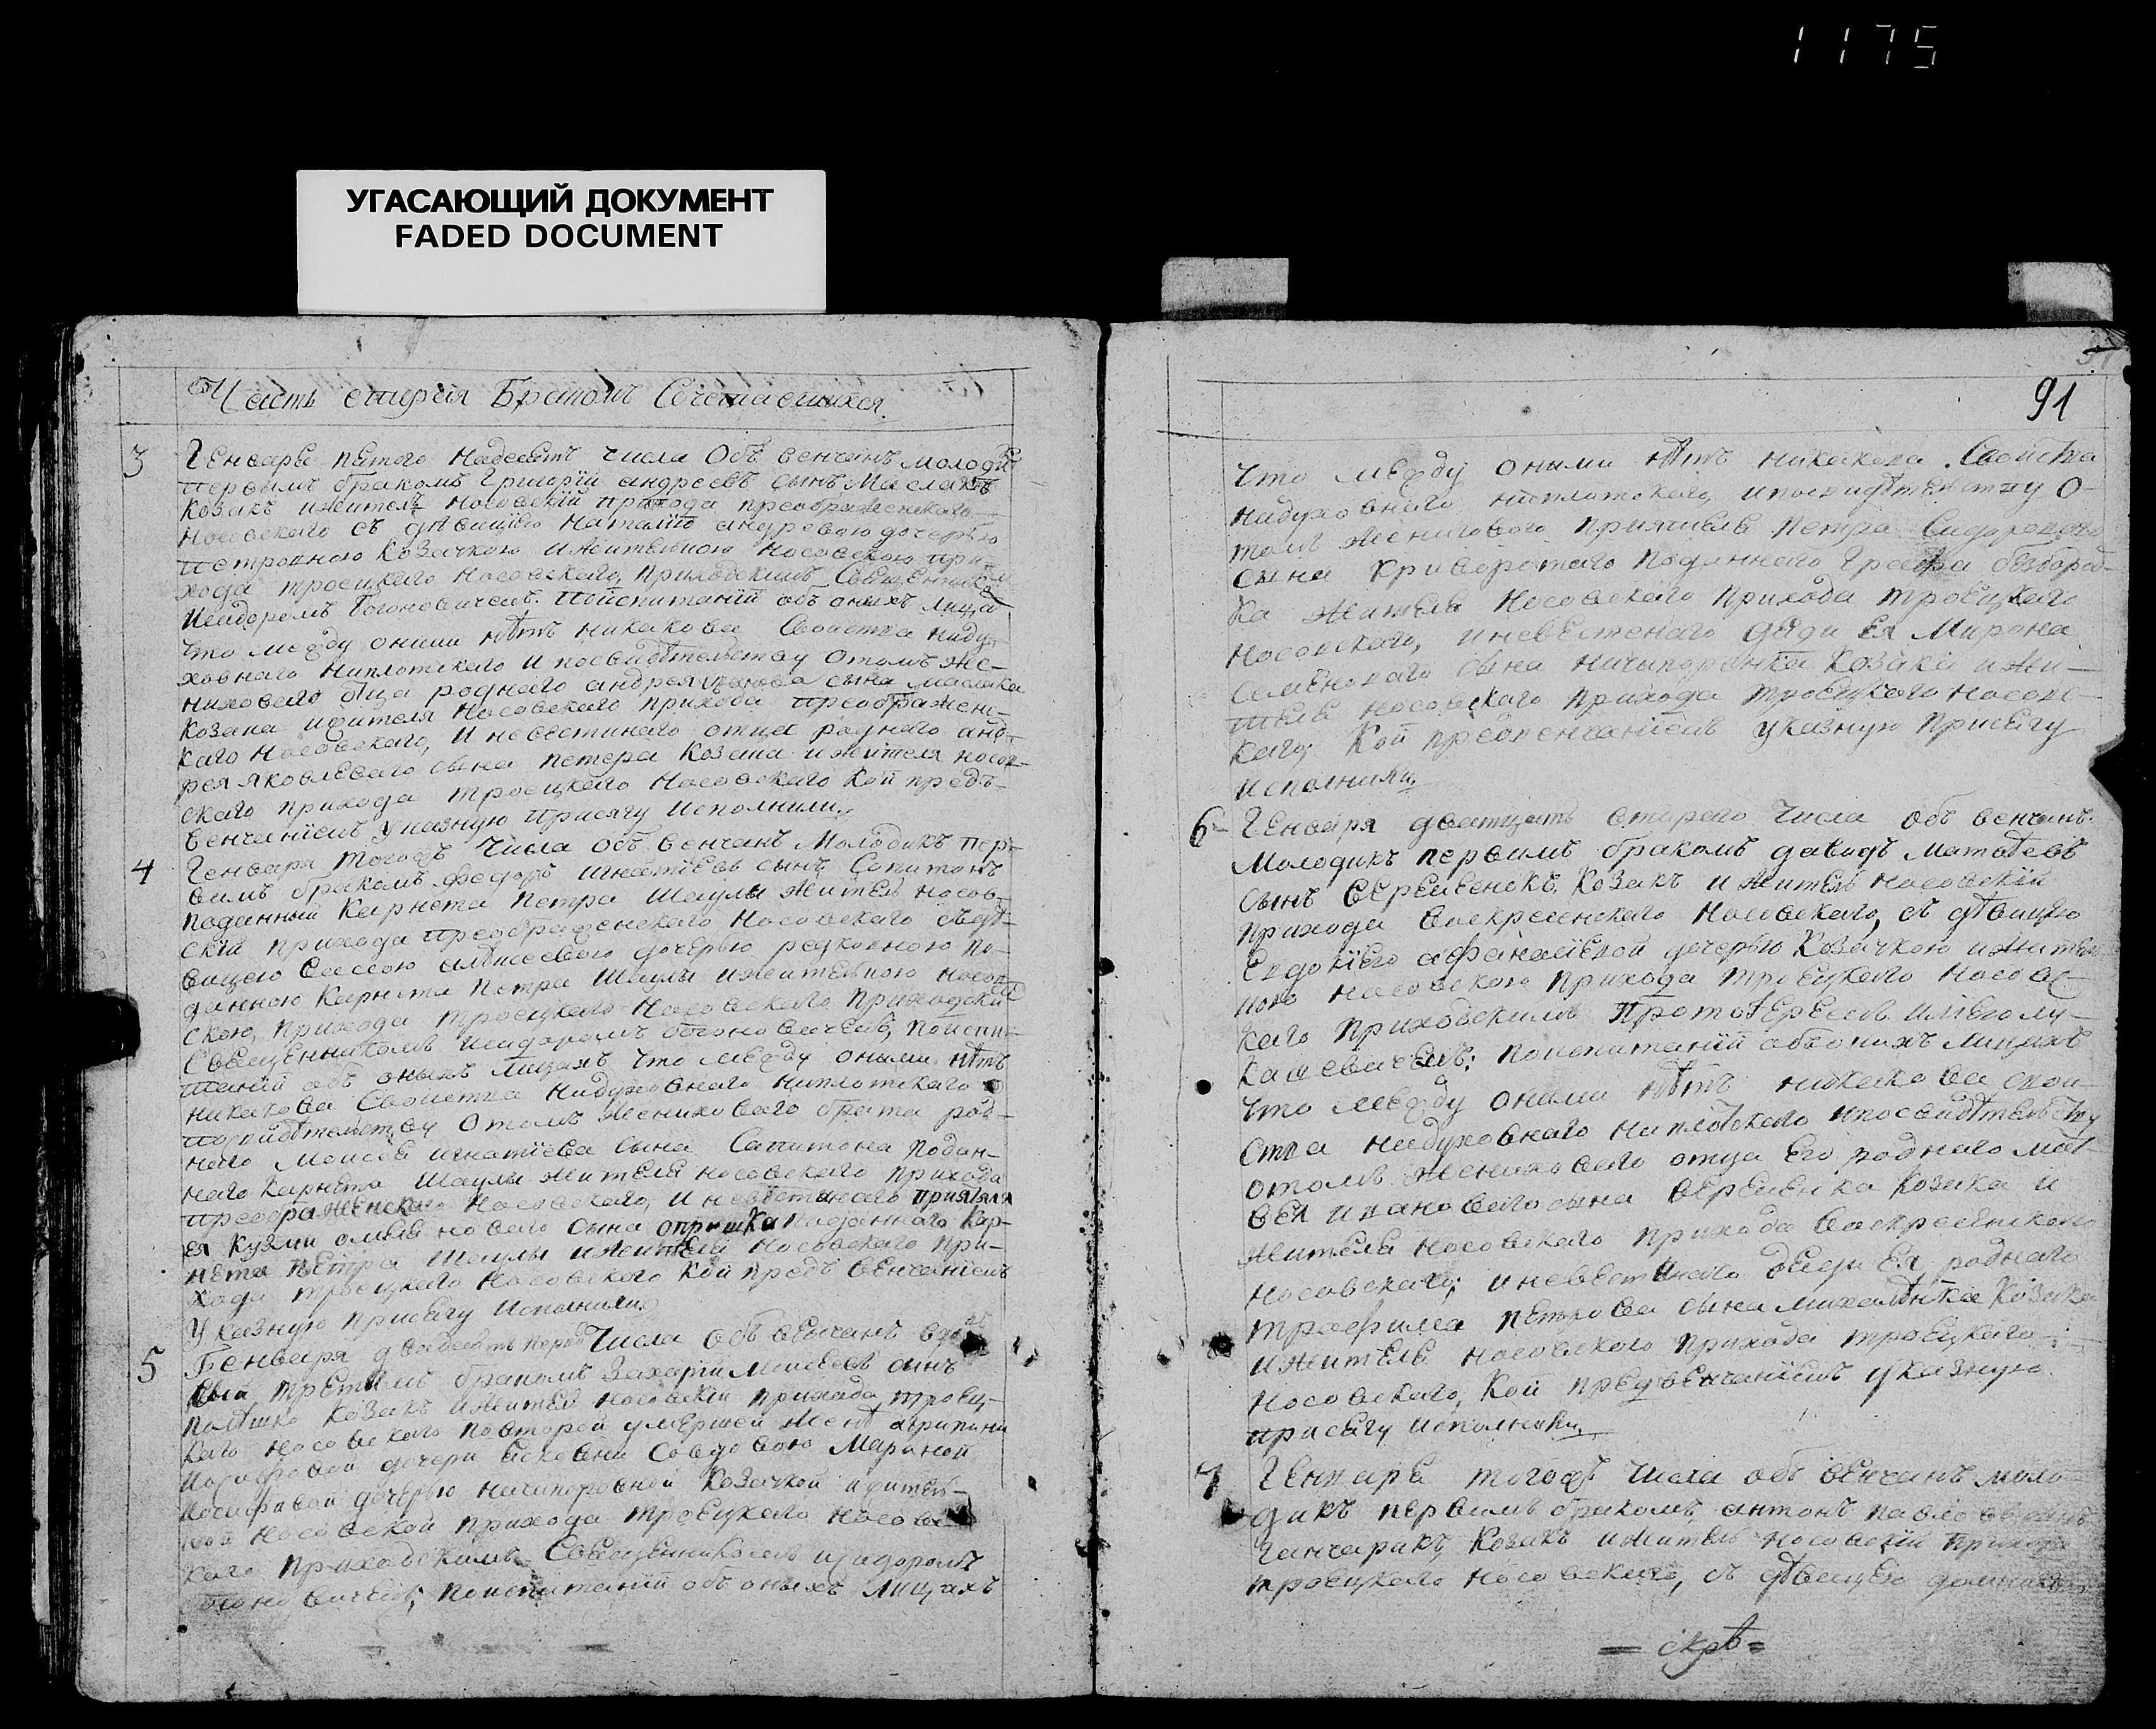 1175
УГАСАЮЩИЙ ДОКУМЕНТ
FADED DOCUMENT
Часть вторая Браком Сочетавшихся
3
Генваря пятого надесять числа Объ венчанъ молодикъ
первимъ бракомъ Григорій андреевъ сынъ Маслакъ
козакъ ижитель носовскій прихода преображенского
носовского съ дѣвицею Наталіею андреевою дочерью
петровною козачкою ижительною носовскою при-
хода троецкого носовского, приходскимъ Священникомъ
Исидоромъ Поиспитаніи объ онихъ лицахъ
что между оними нѣтъ никакова Своиства ниду-
ховнаго ниплотскаго и посвидѣтельству отомъ же-
нихового отца родного андрея сына маслака
козака ижителя носовского прихода преображен-
каго носовского, и невестиного отца родного анд-
рея яковлевого сына петера козака ижителя носов-
ского прихода троецкого носовского кои предъ
венчаніемъ указную присягу исполнили
4
Генваря тогожъ числа объ венчанъ молодикъ пер-
вимъ бракомъ федоръ игнатіевъ сынъ Сапитонъ
поданный карнета петра Шаулы житель носов-
скій прихода преображенского носовского съ дѣ-
вицею дочерью по-
данною карнета петра Шаулы ижительною носов-
скою, прихода троецкого носовского приходским
Священникомъ исидоромъ поиспи-
таніи объ оныхъ лицахъ что между оними нѣтъ
никакова Своиства нидуховнаго ниплотскаго
посвидѣтельству отомъ женихового брата род-
ного Моисея игнатіева сына Сапитона подан-
ного карнета Шаулы жителя носовского прихода
преображенского носовского, и невестиного приятеля
ея кузми сына опришка поданного кар-
нета петра Шаулы ижителя носовского при-
хода троецкого носовского кои предъ венчаніемъ
указную присягу исполнили
5
Генваря двадесять перво числа объ венчанъ
третимъ бракомъ Захарій Моисеевъ сынъ
козакъ ижитель носовскій прихода троец-
кого носовского повторой умершей женѣ агрипини
дочери Совдовою Мариной
дочерью ничипоровной козачкой ижитель-
ной носовской прихода троецкого носовс-
кого приходскимъ Священникомъ исидоромъ
поиспитаніи объ оныхъ лицахъ
91
что между оними нѣтъ никакова Своиства
нидуховнаго ниплотскаго, ипосвидѣтельству о-
томъ женихового приятеля петра Сидорового
сына криворотого поданного Графа безборо-
ка жителя носовского прихода троецкого
носовского, иневестеного дяди ея Мирона
Семеноваго сына ничипоренка козака ижи-
теля носовского прихода троецкого носовс-
каго; кои предвенчаніемъ указную присягу
исполнили
6
Генваря двадцать второго числа объ венчанъ
молодикъ первимъ бракомъ давидъ матвѣевъ
сынъ козакъ ижитель носовскій
прихода воскресенского носовского, съ дѣвицею
Евдокіею афанасіевой дочерью козачкою ижитель
ною носовскою прихода троецкого носовс-
каго приходскимъ Протоіереемъ
поиспитаніи объ онихъ лицахъ
что между оними нѣтъ никакова свои-
ства нидуховнаго ниплотскаго ипосвидѣтельству
отомъ женихового отца его родного мат-
вея ивановаго сына козака и
жителя носовского прихода воскресенского
носовского; иневестиного дяди ея родного
трофима петрова сына михалѣнка козака
ижителя носовского прихода троецкого
носовского, кои предвенчаніемъ указную
присягу исполнили
7
Генваря тогожъ числа объ венчанъ моло-
дикъ первимъ бракомъ антонъ
ганчарикъ козакъ ижитель носовскій прихода
троецкого носовского, съ дѣвицею
= скрѣ =